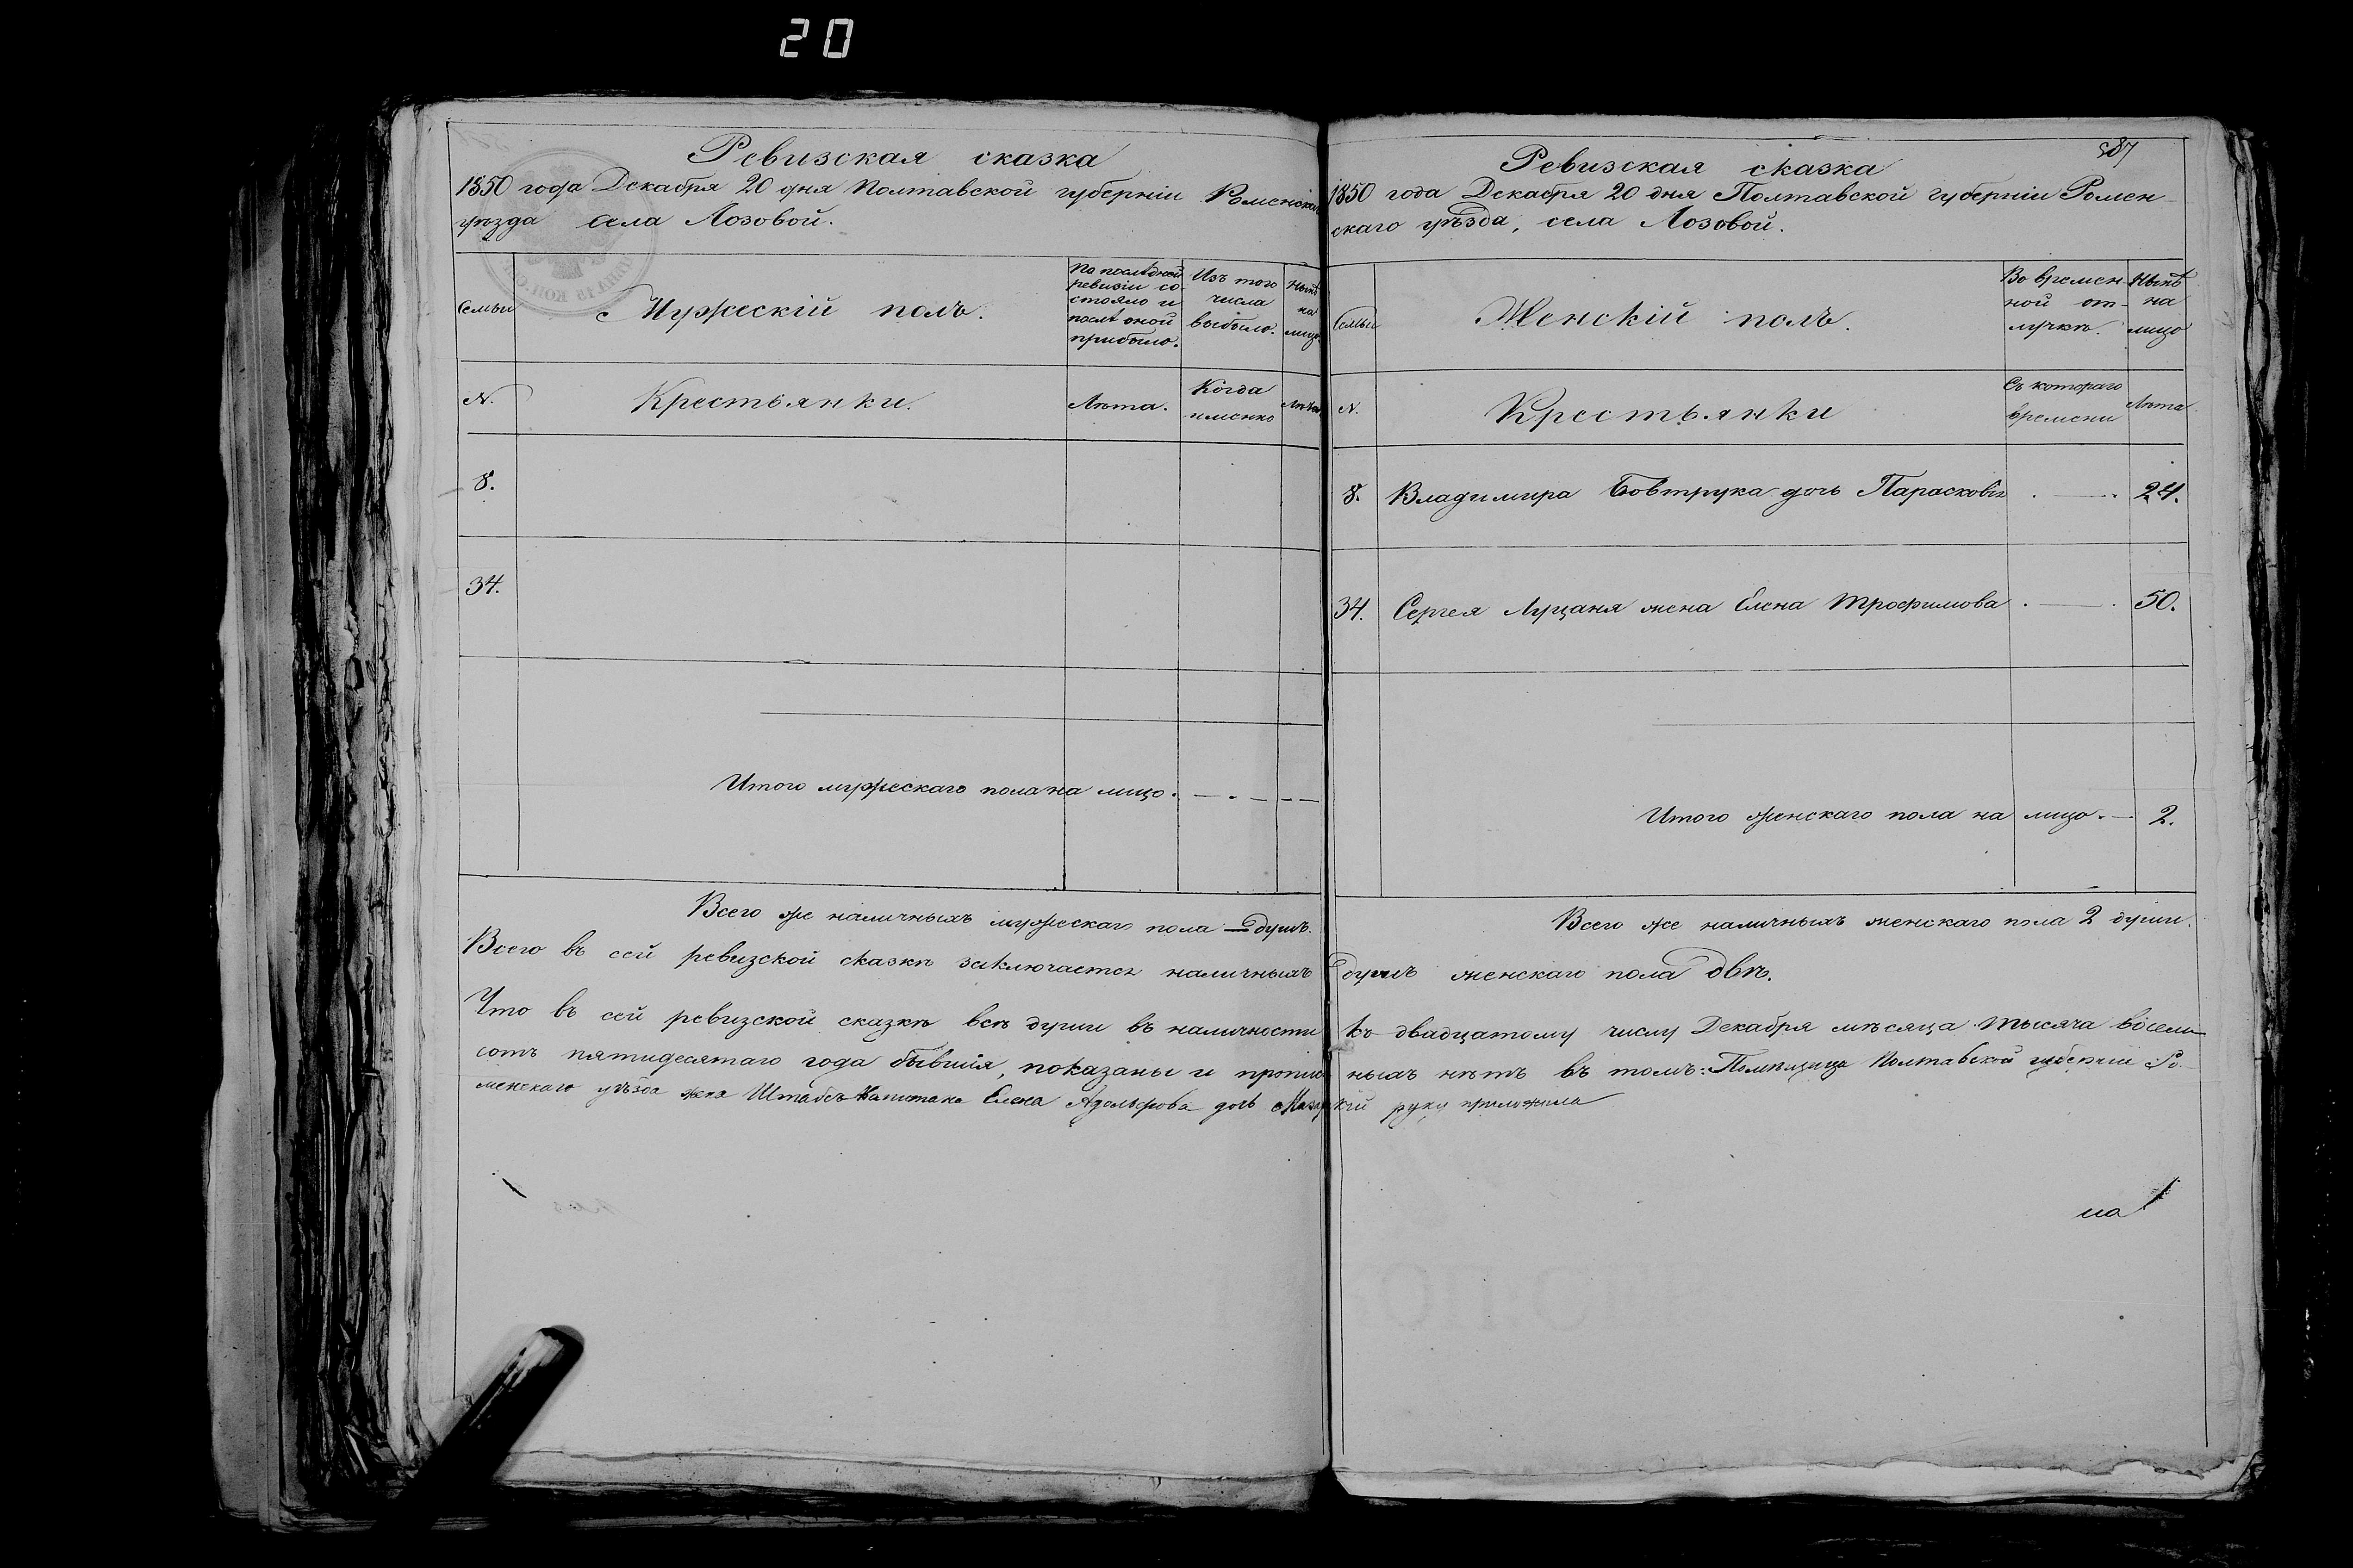 20
Ревизская сказка
1850 года Декабря 20 дня Полтавской губернiи Роменскаго
уѣзда села Лозовой.
Семьи
Мужескiй полъ.
По послѣдней
ревизiи со-
стояло и
послѣ оной
прибыло.
Изъ того
числа
выбыло.
Нынѣ
на
лицо.
N.
Крестьянки.
Лѣта.
Когда
именно
Лѣта
8.
34.
Итого мужескаго пола на лицо. — . — — —
Всего же наличныхъ мужескаго пола — душъ.
Всего въ сей ревизской сказкѣ заключается наличныхъ
Что въ сей ревизской сказкѣ всѣ души въ наличности
сотъ пятидесятаго года бывшiя, показаны и пропис
менскаго уѣзда жена Штабсъ Капитана Елена Адольфова дочь
587
Ревизская сказка
1850 года Декабря 20 дня Полтавской Губернiи Ромен
скаго уѣзда, села Лозовой.
Семьи
Женскiй полъ.
Во времен-
ной от-
лучкѣ.
Нынѣ
на
лицо
N.
Крестьянки
Съ котораго
времени
Лѣта
8. Владимира Бовтрука дочь Парасковiя . — . 24.
34. Сергея Луцаня жена Елена Трофимова . — . 50.
Итого женскаго пола на лицо. — 2.
Всего же наличныхъ женскаго пола 2 души.
душъ женскаго пола двѣ.
къ двадцатому числу Декабря мѣсяца тысяча восемь
ныхъ нѣтъ въ томъ: Помѣщица Полтавской губернiи Ро
руку приложила
на